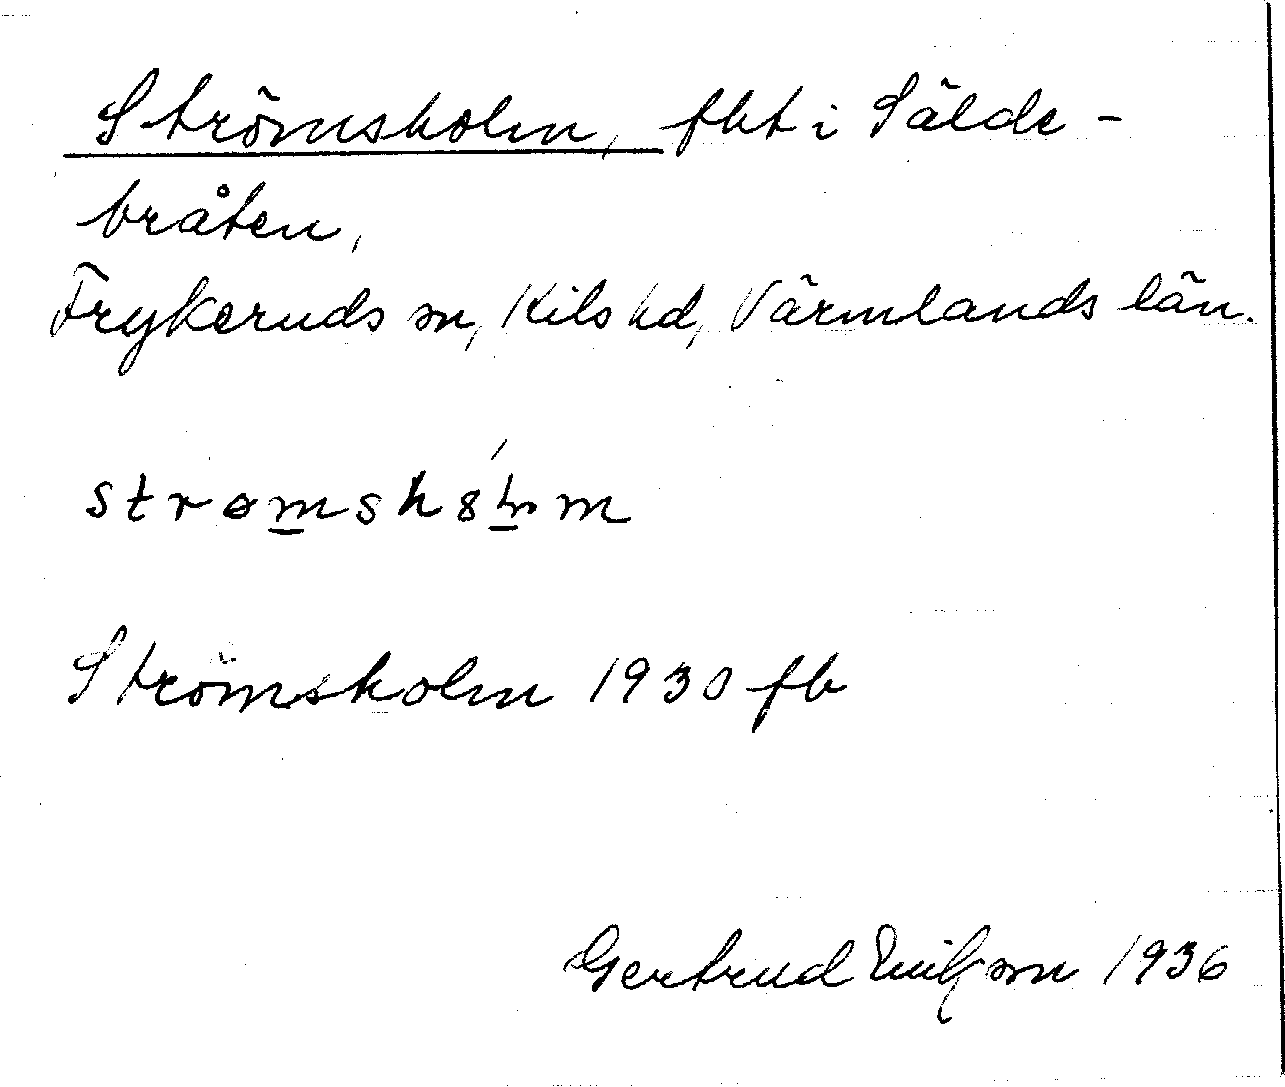 Strömsholm, fht i Sälde-
bråten,
Frykeruds sn, Kils hd, Värmlands län.
Strömsholm 1930 fb
Gertrud 1936